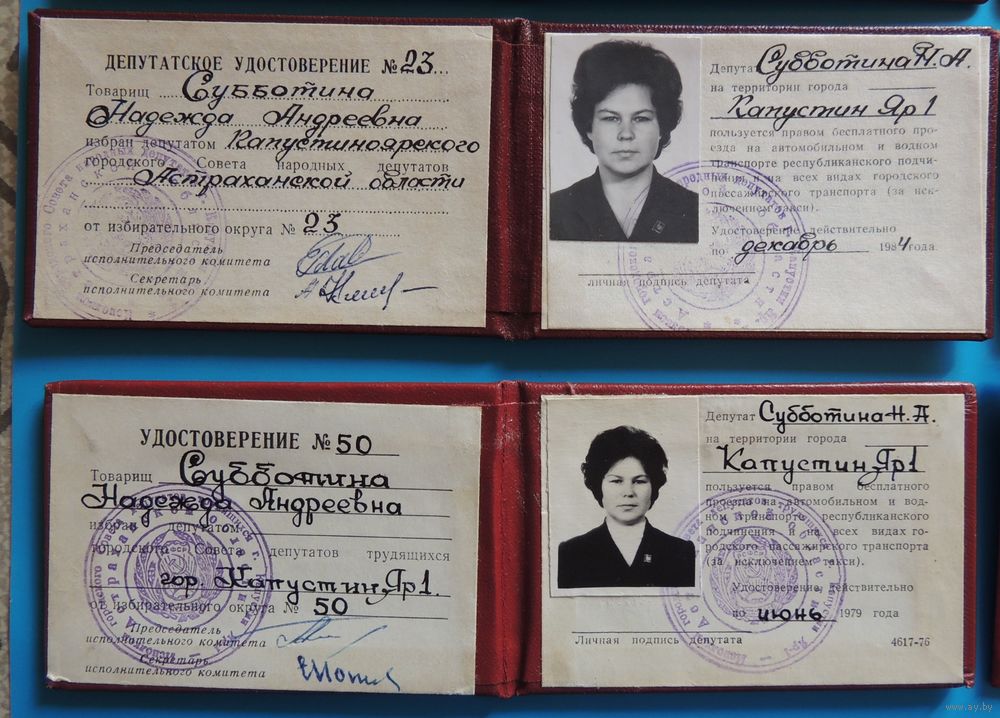 ДЕПУТАТСКОЕ УДОСТОВЕРЕНИЕ № 23
Товарищ Субботина
Надежда Андреевна
избран депутатом Капустиноярского
городского Совета народных депутатов
Астраханской области
от избирательного округа № 23
Председатель
исполнительного комитета
Секретарь
исполнительного комитета
Депутат Субботина Н. А.
на территории города
Капустин Яр 1
пользуется правом бесплатного про-
езда на автомобильном и водном
транспорте республиканского подчи-
нения и на всех видах городского
пассажирского транспорта (за иск-
лючением такси).
Удостоверение действительно
по декабрь 1984 года.
личная подпись депутата
УДОСТОВЕРЕНИЕ № 50
Товарищ Субботина
Надежда Андреевна
избран депутатом
городского Совета депутатов трудящихся
гор. Капустин Яр 1.
от избирательного округа № 50
Председатель
исполнительного комитета
Секретарь
исполнительного комитета
Депутат Субботина Н. А.
на территории города
Капустин Яр 1
пользуется правом бесплатного
проезда на автомобильном и вод-
ном транспорте республиканского
подчинения и на всех видах го-
родского пассажирского транспорта
(за исключением такси).
Удостоверение действительно
по июнь 1979 года
Личная подпись депутата
4617-76
www.ay.by